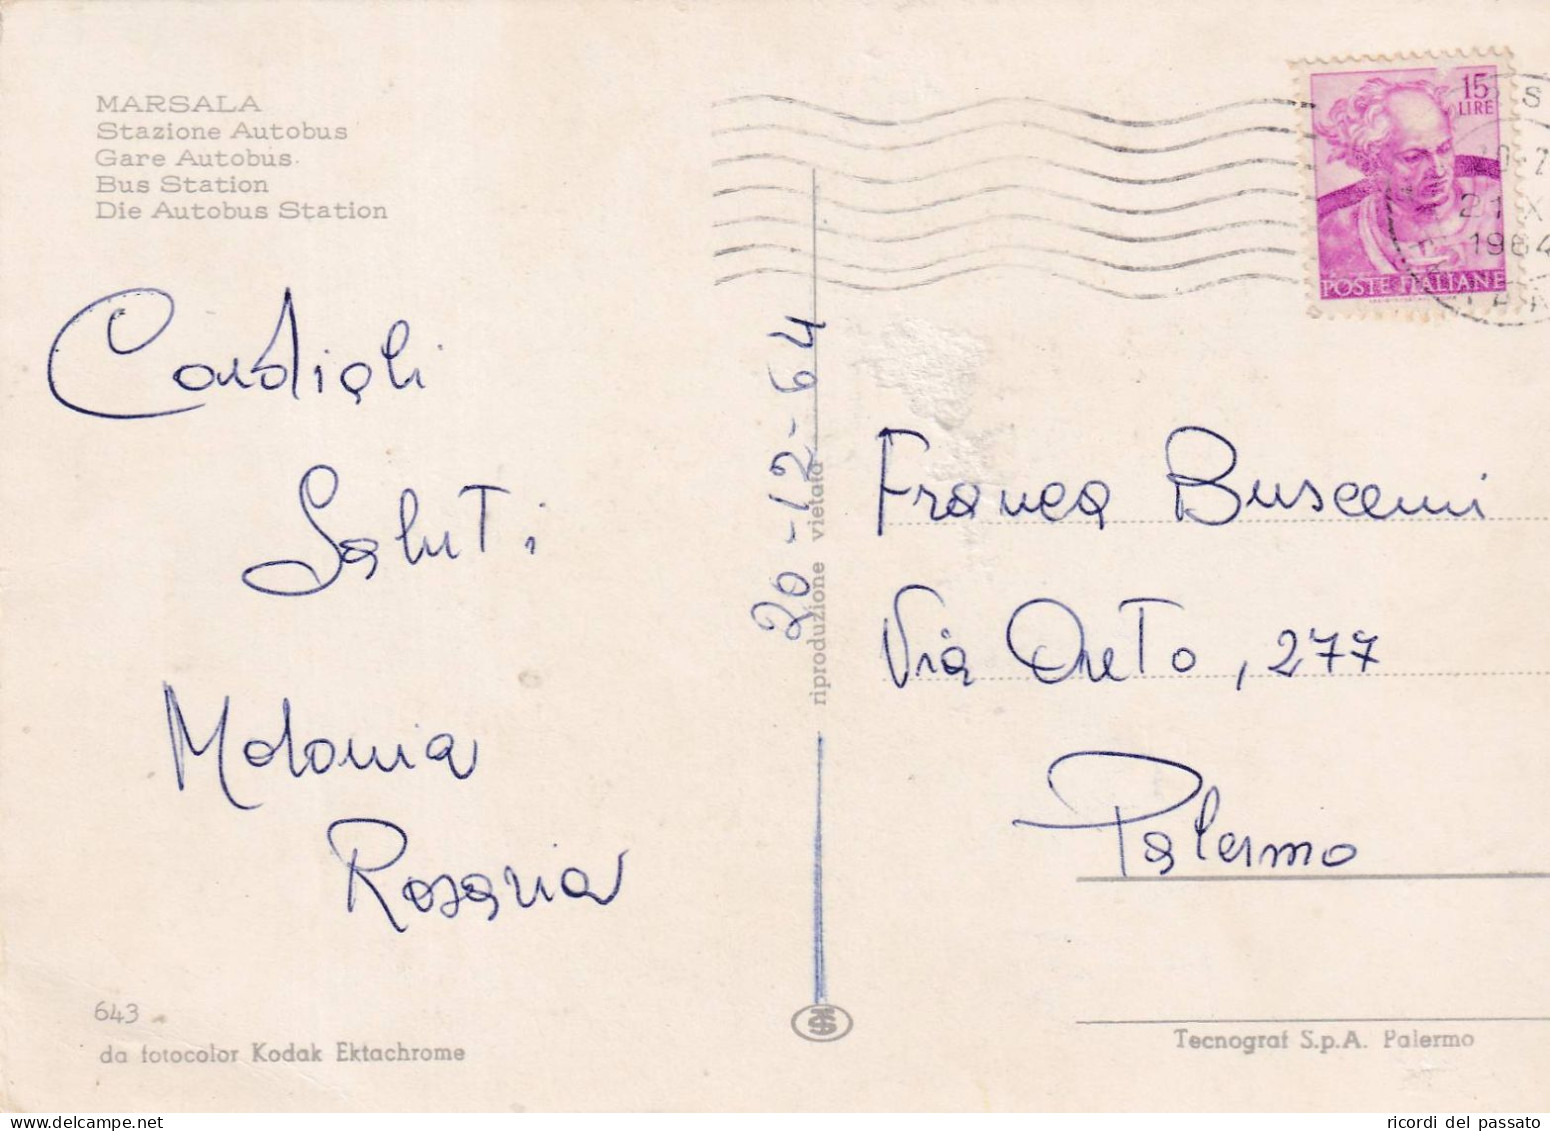 MARSALA
Stazione Autobus
Gare Autobus
Bus Station
Die Autobus Station
Cordiali
Saluti
Madonia
Rosaria
643
da fotocolor Kodak Ektachrome
20-12-64
riproduzione vietata
15
LIRE
POSTE ITALIANE
21 X
1964
Franca Buscemi
Via Oreto, 277
Palermo
Tecnograf S.p.A. Palermo
ricordi del passato